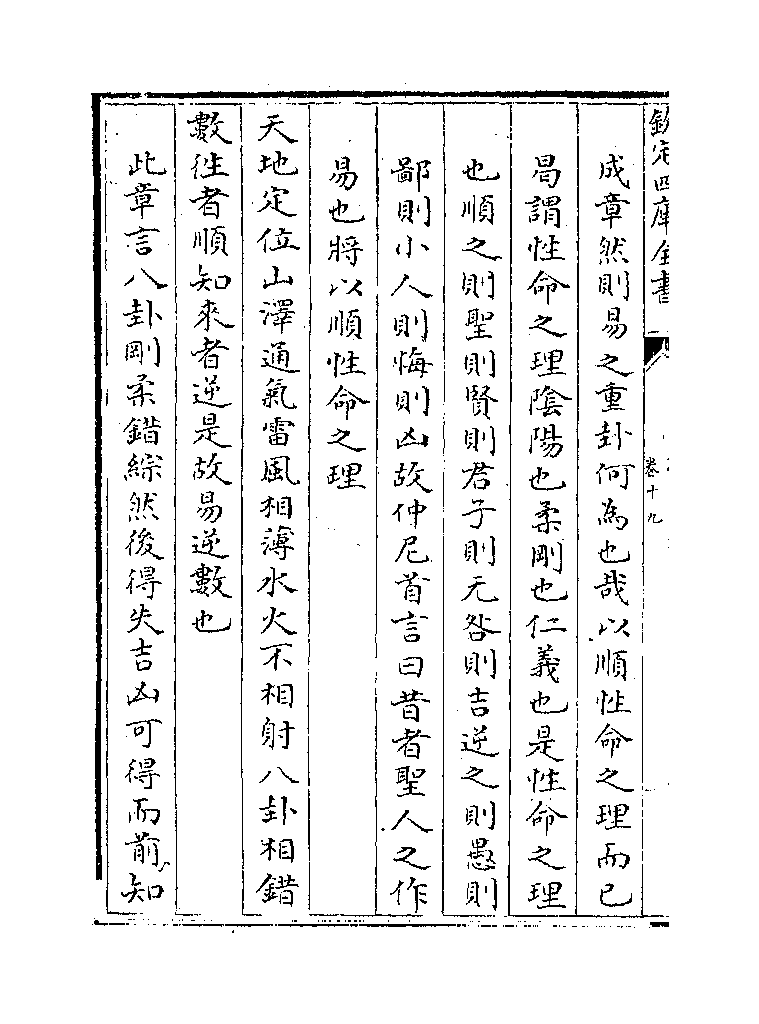 欽定四庫全書
卷十九
成章然則易之重卦何為也哉以順性命之理而已
曷謂性命之理陰陽也柔剛也仁義也是性命之理
也順之則聖則賢則君子則无咎則吉逆之則愚則
鄙則小人則悔則凶故仲尼首言曰昔者聖人之作
易也將以順性命之理
天地定位山澤通氣雷風相薄水火不相射八卦相錯
數徃者順知來者逆是故易逆數也
此章言八卦剛柔錯綜然後得失吉凶可得而前知